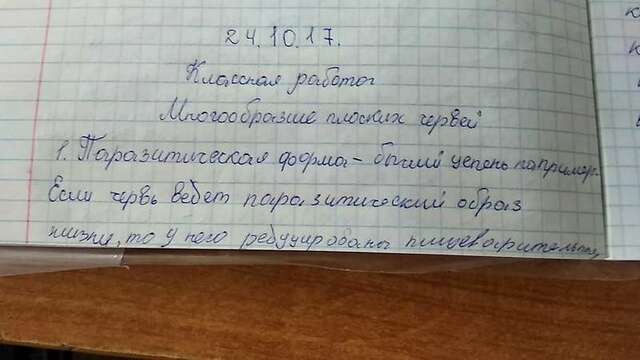 24.10.17.
Классная работа
Многообразие плоских червей
1. Паразитическая форма - бычий цепень например.
Если червь ведет паразитический образ
жизни, то у него редуцированы пищеварительная,